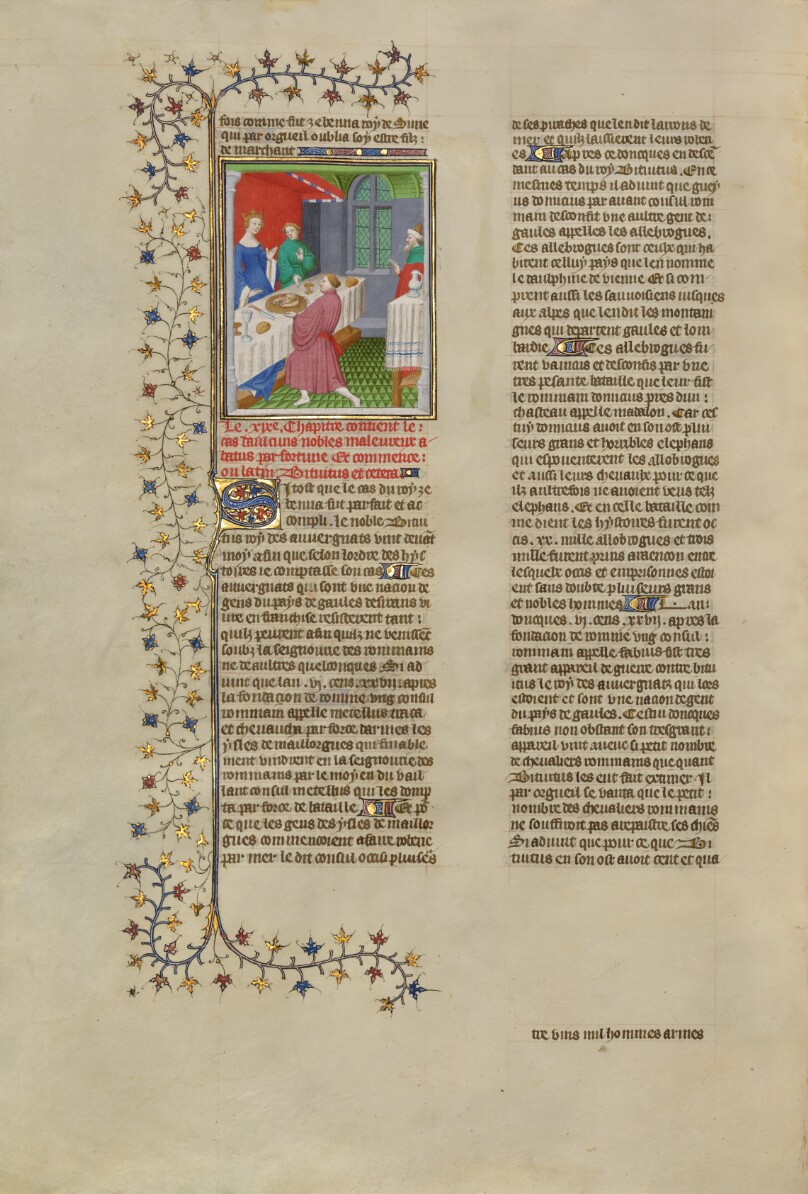 fois comme fut zebenna roy de Surie
qui par orgueil oublia soy estre filz:
de marchant
Le .xixe. Chapitre contient le:
cas daucuns nobles maleureux a
batus par fortune Et commence:
ou latin Bituitus et cetera
Si tost que le cas du roy ze
benna fut parfait et ac
compli. le noble Bitui
tus roy des auuergnats vint deuant
moy afin que selon lordre des hys
toires ie comptasse son cas Ces
auuergnats qui sont vne nacion de
gens du pays de gaules desirans vi
ure en franchise resisterent tant:
quilz peurent afin quilz ne venissent
soubz la seignourie des rommains
ne daultres quelconques Si ad
uint que lan .vi. cens. xxvii. apres
la fondacion de romme vng consul
rommain appelle metellus
et cheuaucha par force darmes les
ysles de maillorgues qui finable
ment vindrent en la seignourie des
rommains par le moyen du vail
lant consul metellus qui les domp
ta par force de bataille Et po
ce que les gens des ysles de maillor
gues commencoient a faire roberie
par mer le dit consul occist pluiseurs
de ses piraches que len dit larrons de
mer et quilz laissierent leurs robe
es Apres ce doncques en desce
dant au cas du roy Bituitus. En ce
mesmes temps il aduint que guey
us domicius par auant consul rom
main desconfit vne aultre gent de:
gaules appelles les allebrogues.
Ces allebrogues sont ceulx qui ha
bitent celluy pays que len nomme
le daulphine de vienne Et si com
prent aussi les sauuoisiens iusques
aux alpes que len dit les montai
gnes qui departent gaules et lom
bardie Ces allebrogues fu
rent vaincus et desconfis par vne
tres pesante bataille que leur fist
le rommain domicius pres dun:
chasteau appelle Car cel
luy domicius auoit en son ost pluι
seurs grans et horribles elephans
qui espouenterent les allobrogues
et aussi leurs cheuaulx pour ce que
ilz aultrefois ne auoient veus telz
elephans. Et en celle bataille com
me dient les hystoires furent oc
cis. xx. mille allobrogues et trois
mille furent prins a rencon entre
lesquelx occis et emprisonnes estoi
ent sans doubte pluiseurs grans
et nobles hommes Lan:
doncques. vi. cens. xxvii. apres la
fondacion de romme vng consul:
rommain appelle fabius fist tres
grant appareil de guerre contre bitu
itus le roy des auuergnatz qui lors
estoient et sont vne nacion de gent
du pays de gaules. Cestui doncques
fabius non obstant son tresgrant:
appareil vint auec si petit nombre
de cheualiers rommains que quant
Bituitus les eut fait extimer Il
par orgueil se vanta que le petit:
nombre des cheualiers rommains
ne souffiroit pas a repaistre ses chiens
Si aduint que pour ce que Bi
tuitus en son ost auoit cent et qua
tre vins mil hommes armes